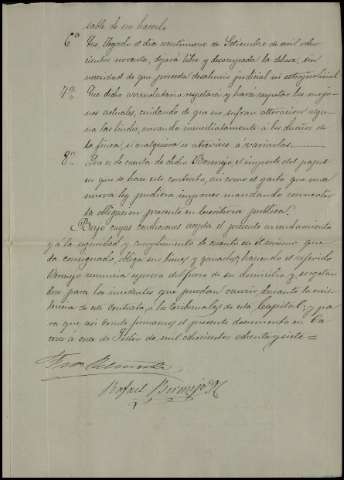 sable de su hacerlo.
6ª Que llegado el dia veintinueve de Setiembre de mil ocho
cientos noventa, dejará libre y desocupada la dehesa, sin
necesidad de que preceda desahucio judicial ni estrajudicial.
7ª Que dicho arrendatario respetará y hará respetar los mojo-
nes actuales, cuidando de que no sufran alteracion algu-
na las lindes, avisando inmediatamente á los dueños de
la finca, si cualquiera se atreviese á variarlas.
8ª Será de cuenta de dicho Bermejo el importe del papel
en que se hace este contrato, asi como el gasto que una
nueva ley pudiera imponer mandando convertir
la obligacion presente en Escritura publica.
Bajo cuyas condiciones acepta el presente arrendamiento
y á la seguridad y cumplimiento de cuanto en el mismo que
da consignado, obliga sus bienes y ganados; haciendo el referido
Bermejo renuncia espresa del fuero de su domicilio y sujetan
dose para los incidentes que puedan ocurrir durante la exis
tencia de este contrato, á los tribunales de esta Capital; y pa
ra que asi conste firmamos el presente documento en
á once de de mil ochocientos ochenta y siete=
Rafael Bermejo